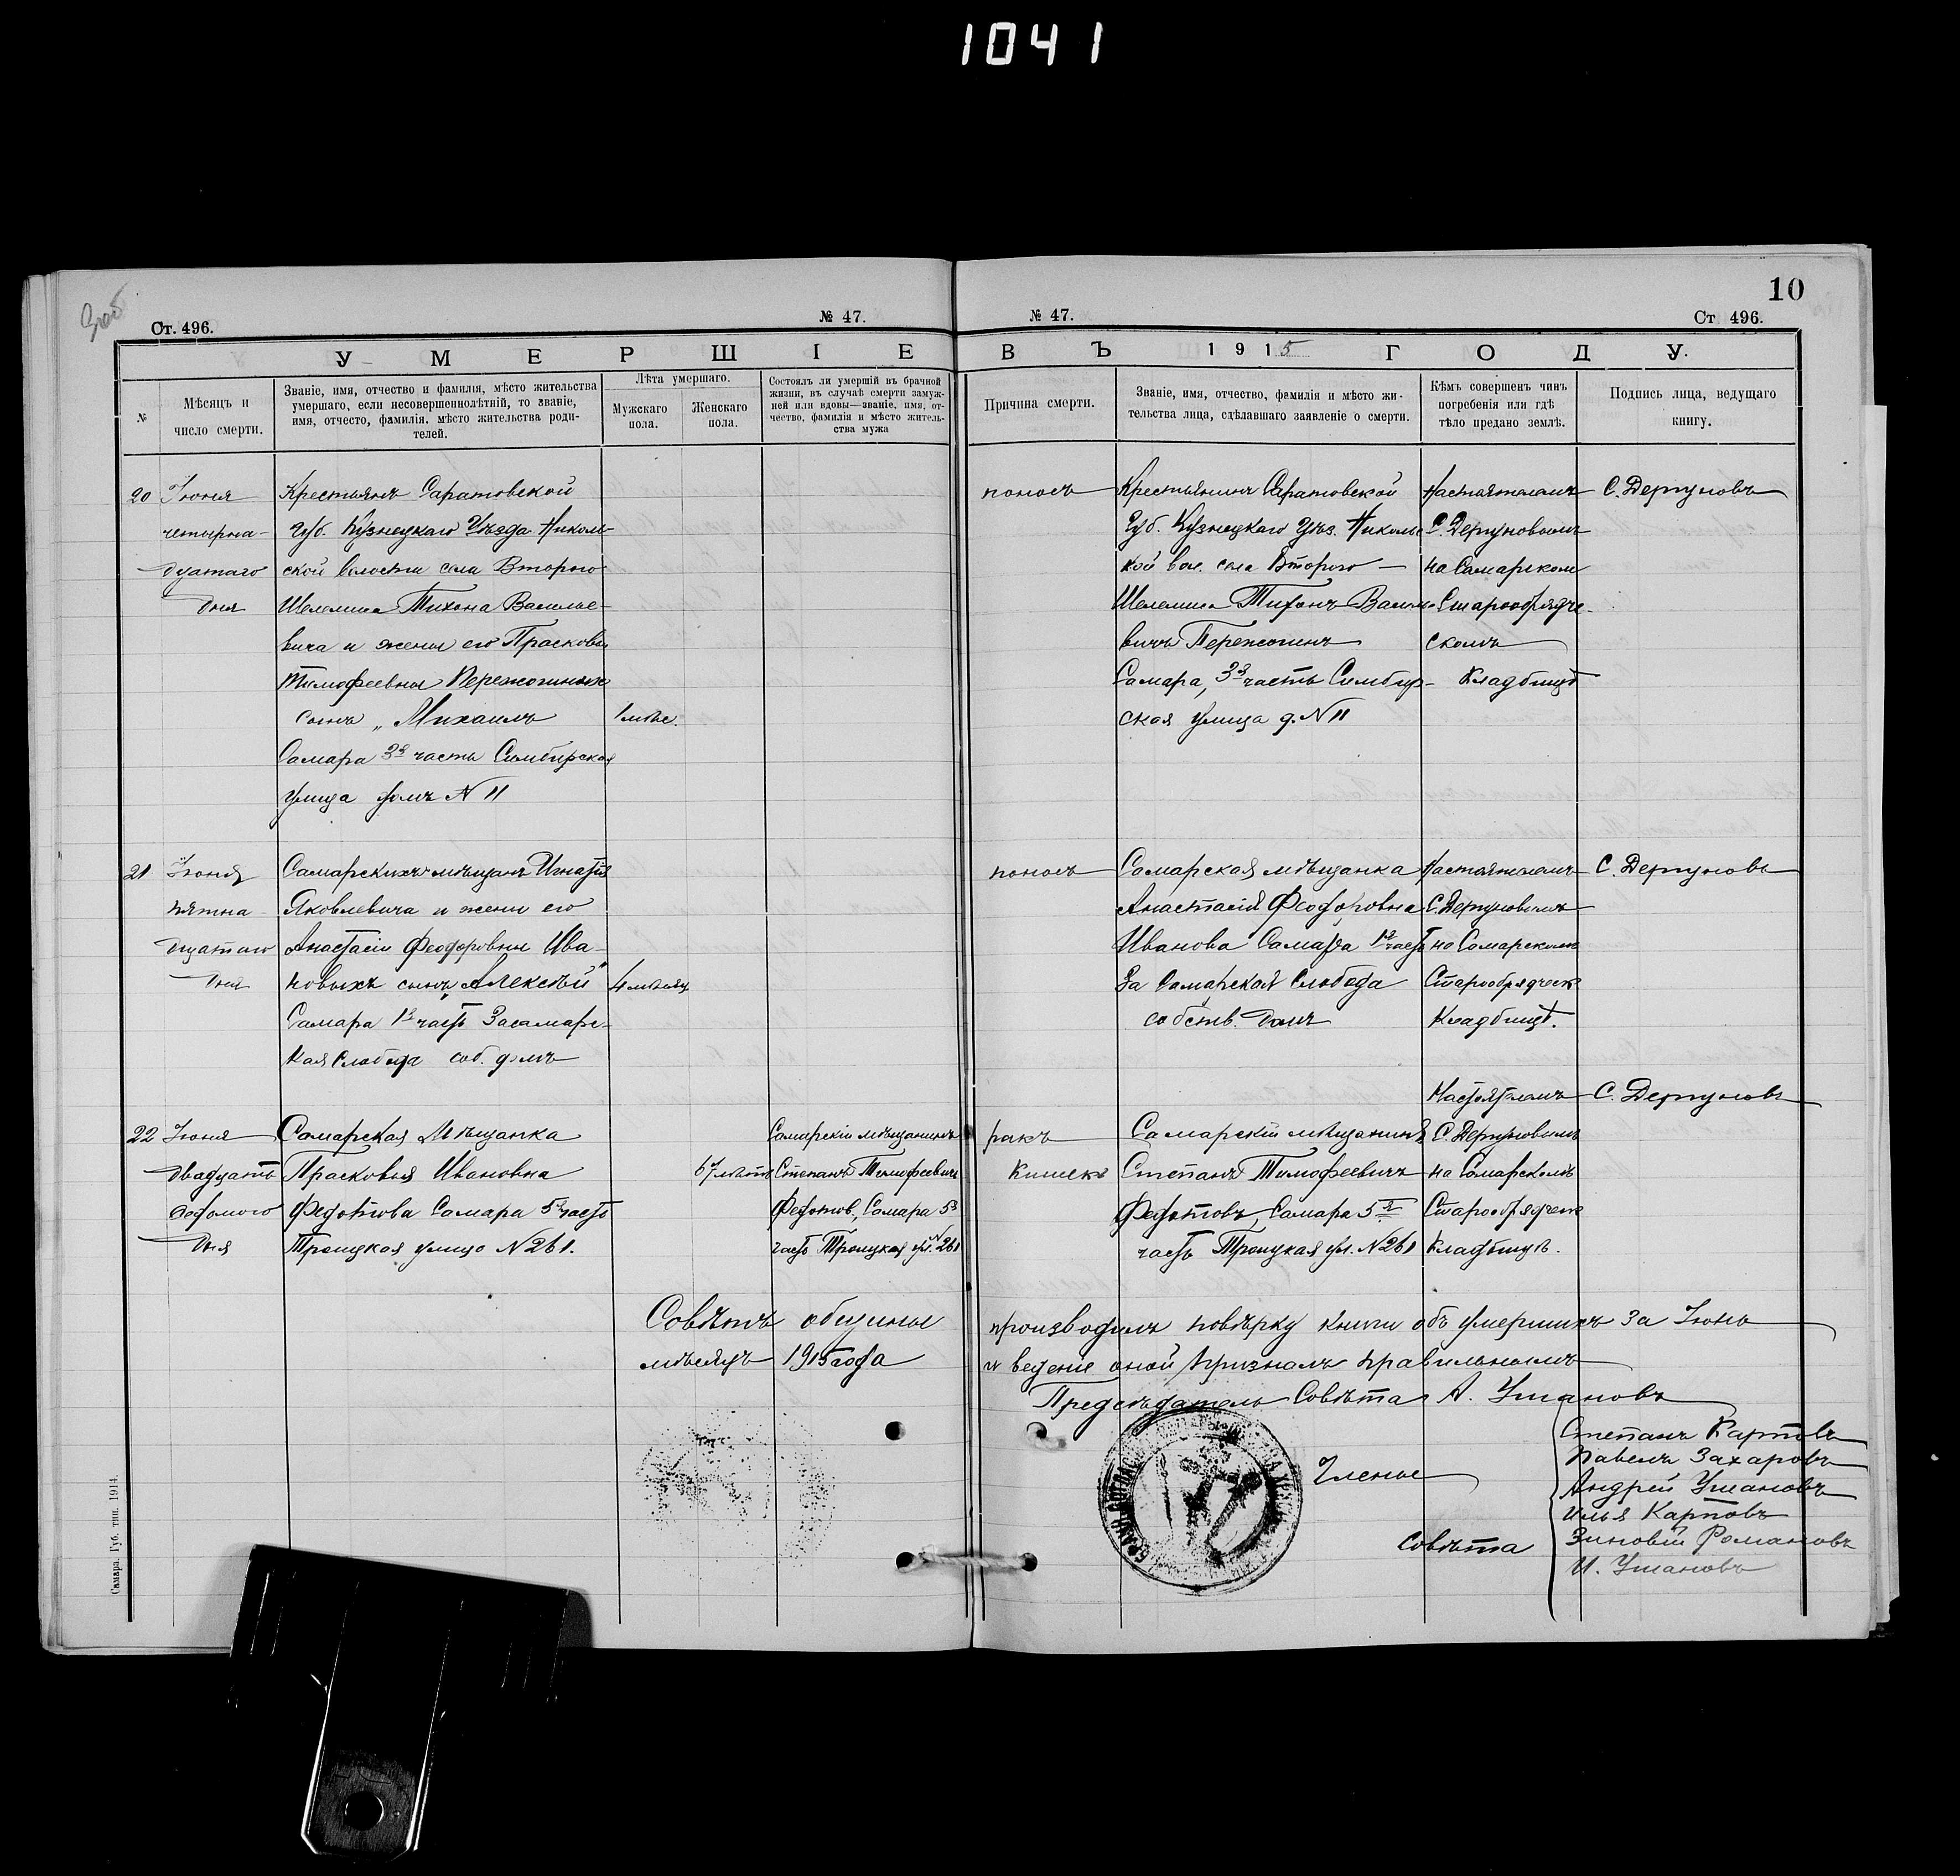 1041
10
Ст. 496.
№ 47.
№ 47.
Ст 496.
УМЕРШІЕ
ВЪ 1915 ГОДУ.
№
Мѣсяцъ и
число смерти.
Званіе, имя, отчество и фамилія, мѣсто жительства
умершаго, если несовершеннолѣтній, то званіе,
имя, отчесто, фамилія, мѣсто жительства роди-
телей.
Лѣта умершаго.
Мужскаго
пола.
Женскаго
пола.
Состоялъ ли умершій въ брачной
жизни, въ случаѣ смерти замуж-
ней или вдовы—званіе, имя, от-
чество, фамилія и мѣсто житель-
ства мужа
Причина смерти.
Званіе, имя, отчество, фамилія и мѣсто жи-
тельства лица, сдѣлавшаго заявленіе о смерти.
Кѣмъ совершенъ чинъ
погребенія или гдѣ
тѣло предано землѣ.
Подпись лица, ведущаго
книгу.
20
Іюня
четырна-
дцатаго
дня
Крестьянъ Саратовской
Губ. Кузнецкаго Уѣзда Николь-
ской волости села Второго
Шелемиса Тихона Василье-
вича и жены его Прасковьи
Тимофеевны Пережогиныхъ
сынъ „Михаилъ
Самара 3я часть Симбирская
улица домъ N 11
1 мѣс.
поносъ
Крестьянинъ Саратовской
Губ. Кузнецкаго Уѣз. Никольс
кой вол. села Второго
Шелемиса Тихонъ Василь-
вичъ Пережогинъ
Самара, 3я часть Симбир-
ская улица д. N 11
Настоятелемъ
С. Дергуновымъ
на Самарском
Старообрядче-
скомъ
Кладбищѣ
С. Дергуновъ
21
Іюня
пятна
дцатаго
дня
Самарскихъ мѣщанъ Игнатія
Яковлевича и жены его
Анастасіи Феодоровны Ива-
новыхъ сынъ „Алексѣй"
Самара 1я часть Засамарс-
кая слобода соб. домъ
4 мѣсяц
поносъ
Самарская мѣщанка
Анастасія Феодоровна
Иванова Самара 1я часть
За Самарская Слобода
собств. домъ
Настоятелемъ
С. Дергуновымъ
на Самарскомъ
Старообрядческ
Кладбищѣ.
С. Дергуновъ
22
Іюня
двадцать
седьмого
дня
Самарская Мѣщанка
Прасковья Ивановна
Федотова Самара 5я часть
Троицкая улица N 261.
67 лѣтъ
Самарскій мѣщанинъ
Степанъ Тимофеевичъ
Федотов, Самара 5я
часть Троицкая ул. N 261
ракъ
кишекъ
Самарскій мѣщанинъ
Степанъ Тимофеевичъ
Федотовъ, Самара 5я
часть Троицкая ул. N 261
Настоятелемъ
С. Дергуновымъ
на Самарскомъ
Старообрядческ
Кладбищѣ.
С. Дергуновъ
Совѣтъ общины производилъ повѣрку книги объ умершихъ за Іюнь
мѣсяцъ 1915 года и веденіе оной призналъ правильнымъ
Предсѣдатель Совѣта А. Ушановъ
Члены
Совѣта
Степанъ Карповъ
Павелъ Захаровъ
Андрей Ушановъ
Илья Карповъ
Зиновій Романовъ
И. Ушановъ
Самара. Губ. тип. 1914.